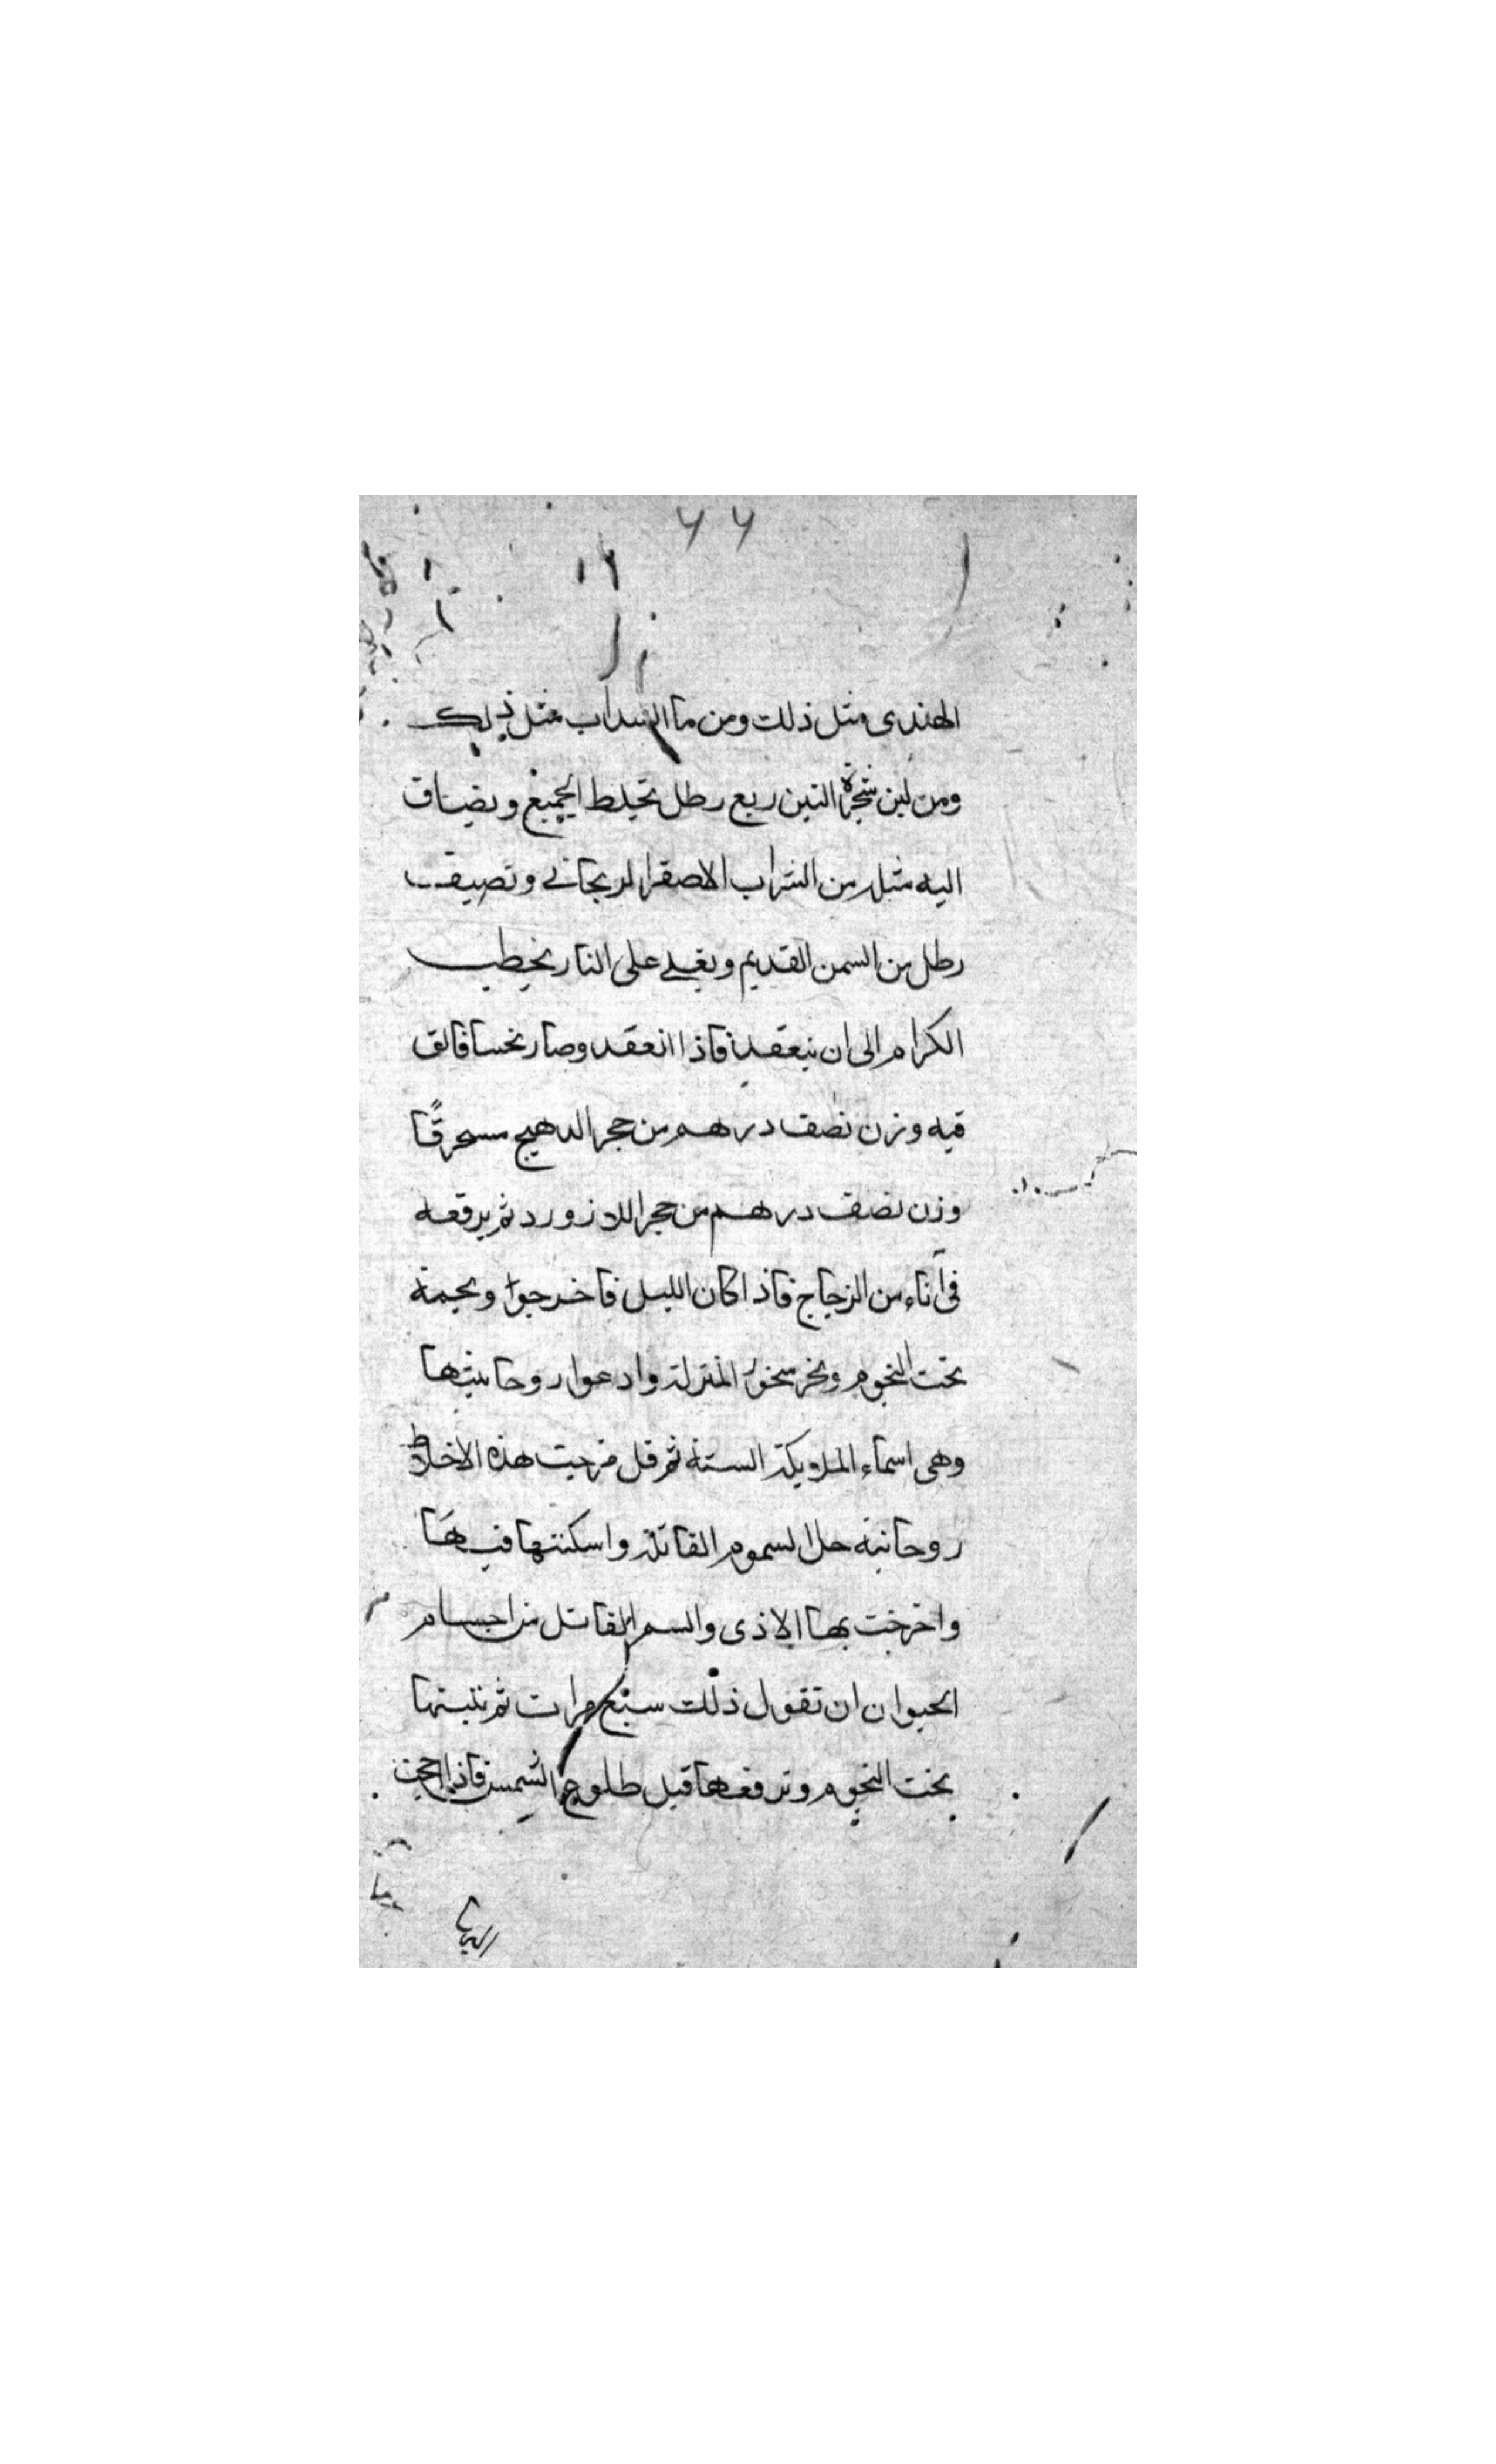 ٦٦
الهندى مثل ذلك ومن ما السداب مثل ذلك
ومن لبن شجرة التين ربع رطل تخلط الجميع ويضاف
اليه مثله من الشراب الاصفر الريحاني ونصيف
رطل من السمن القديم ويغلي على النار بحطب
الكرام الى ان ينعقد فاذا انعقد وصار نحسا فالق
فيه وزن نصف درهم من حجر الدهيج مسحوقًا
وزن نصف درهم من حجر اللازورد ثم يرفعه
فى اناء من الزجاج فاذا كان الليل فاخرجوا ونجمة
تحت النجوم وبخر بخور المنزلة وادعوا روحانيتها
وهى اسماء الملويكة الستة ثم قل مزجت هذه الاخلاط
روحانية حل السموم القاتلة واسكنتها فيها
واخرجت بها الاذى والسم القاتل من اجسام
الحيوان ان تقول ذلك سبع مرات ثم تبيتها
تحت النجوم وترفعها قبل طلوع الشمس فاذا احجت
اليها